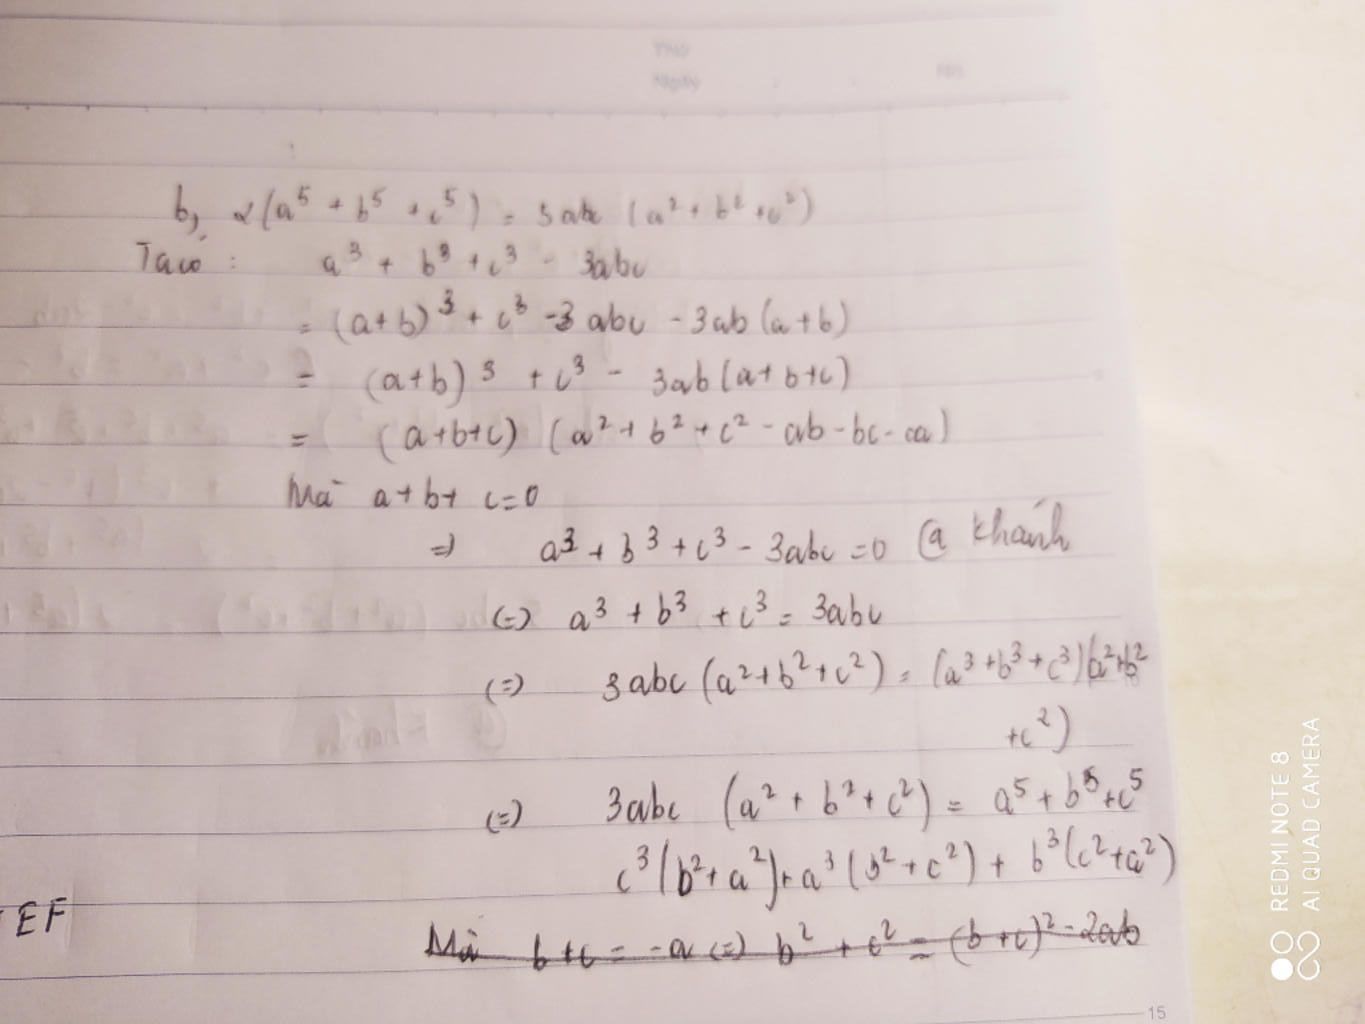 b, 2(a⁵ + b⁵ + c⁵) = 5abc (a² + b² + c²)
Ta có : a³ + b³ + c³ - 3abc
= (a+b)³ + c³ - 3abc - 3ab(a+b)
= (a+b)³ + c³ - 3ab(a+b+c)
= (a+b+c) (a² + b² + c² - ab - bc - ca)
Mà a+b+c=0
=> a³ + b³ + c³ - 3abc = 0 @ Khánh
(=) a³ + b³ + c³ = 3abc
(=) 3abc (a² + b² + c²) = (a³ + b³ + c³)(a² + b²
+c²)
(=) 3abc (a² + b² + c²) = a⁵ + b⁵ + c⁵
c³(b² + a²) + a³(b² + c²) + b³(c² + a²)
EF
Mà b+c = -a (=) b² + c² = (b+c)² - 2ab
15
REDMI NOTE 8
AI QUAD CAMERA